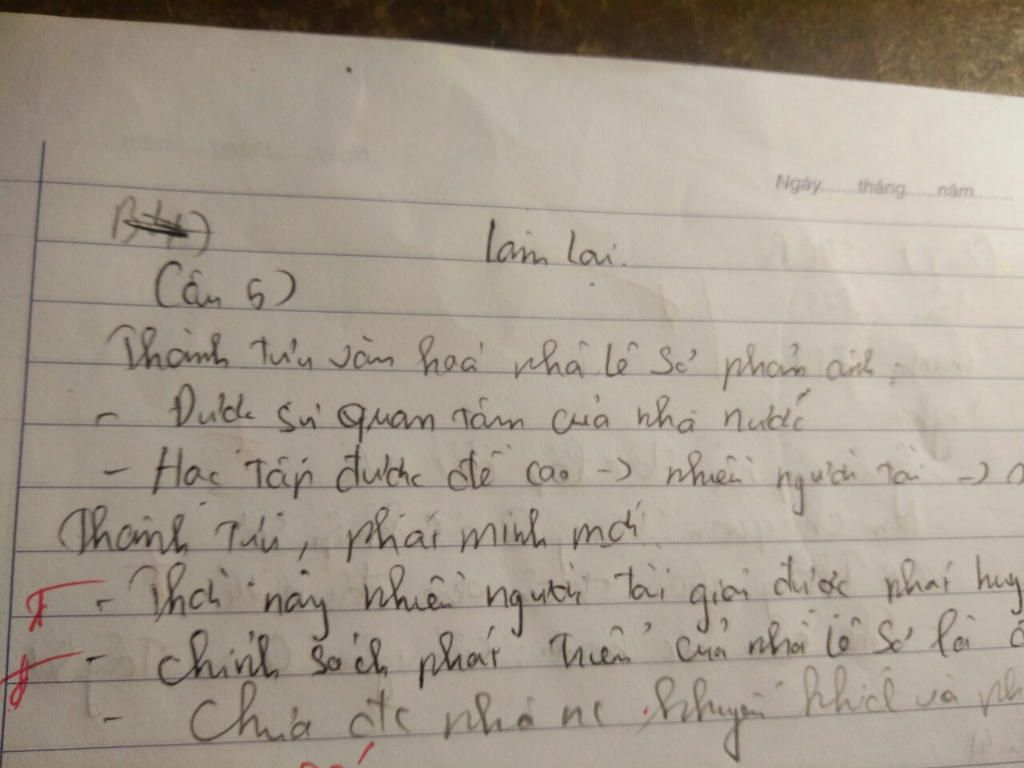 Ngày......tháng......năm......
làm lại.
(Câu 5)
Thành tựu văn hoá nhà lê Sơ phản ánh:
- Được sự quan tâm của nhà nước
- Học tập được đề cao -> nhiều người tài ->
Thành tựu, phát minh mới
- Thời này nhiều người tài giỏi được phát huy
- chính sách phát triển của nhà lê sơ là
- Chưa đc nhà nc khuyến khích và